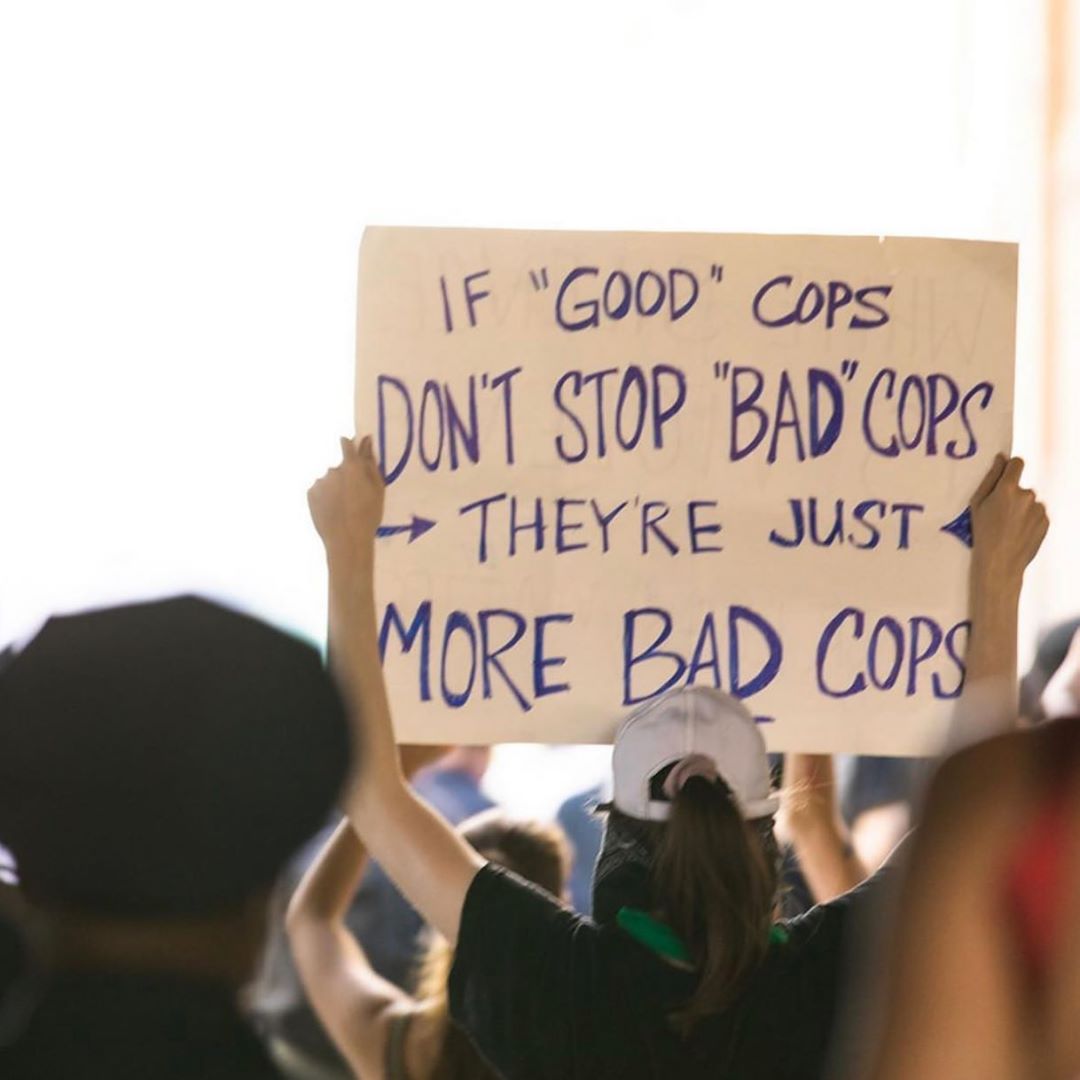 IF "GOOD" COPS
DON'T STOP "BAD" COPS
→ THEY'RE JUST ←
MORE BAD COPS